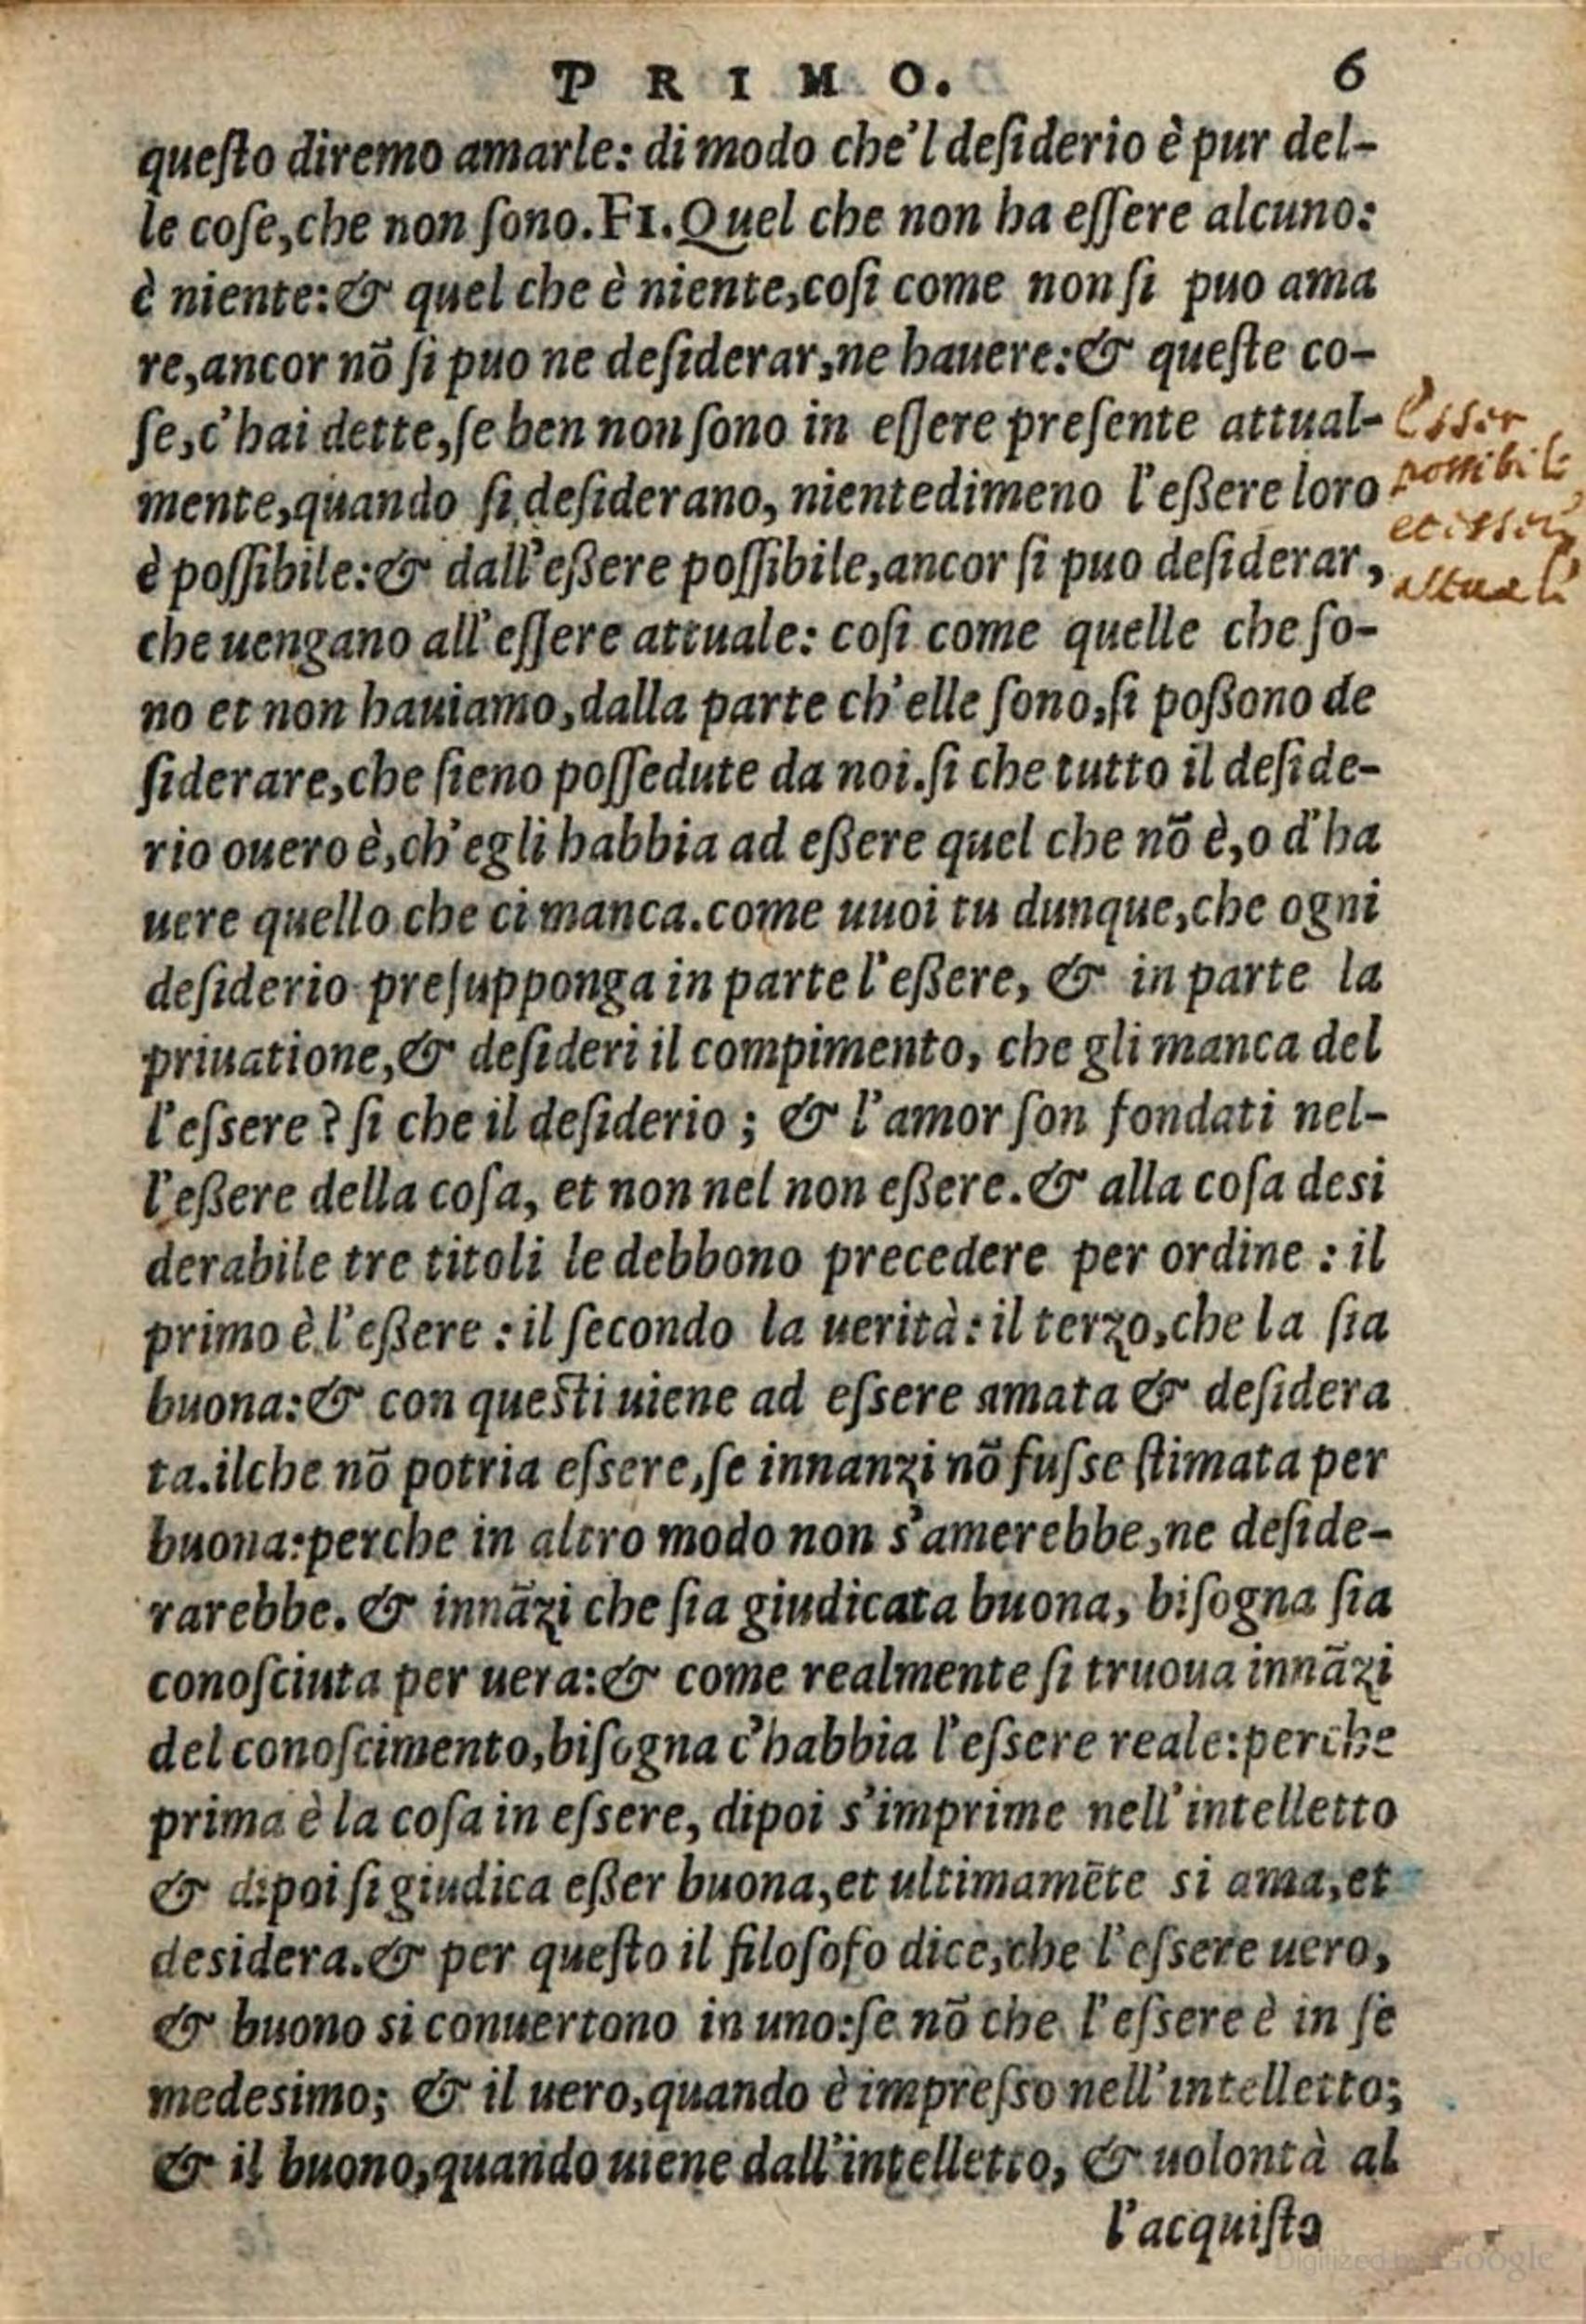 PRIMO. 6
queſto diremo amarle: di modo che'l deſiderio è pur del-
le coſe, che non ſono. FI. Quel che non ha eſſere alcuno:
è niente: & quel che è niente, coſi come non ſi puo ama
re, ancor nō ſi puo ne deſiderar, ne hauere: & queſte co-
ſe, c'hai dette, ſe ben non ſono in eſſere preſente attual-
mente, quando ſi deſiderano, nientedimeno l'eßere loro
è poſſibile: & dall'eßere poſſibile, ancor ſi puo deſiderar,
che uengano all'eſſere attuale: coſi come quelle che ſo-
no et non hauiamo, dalla parte ch'elle ſono, ſi poßono de
ſiderare, che ſieno poſſedute da noi. ſi che tutto il deſide-
rio ouero è, ch'egli habbia ad eßere quel che nō è, o d'ha
uere quello che ci manca. come uuoi tu dunque, che ogni
deſiderio preſupponga in parte l'eßere, & in parte la
priuatione, & deſideri il compimento, che gli manca del
l'eſsere? ſi che il deſiderio; & l'amor ſon fondati nel-
l'eßere della coſa, et non nel non eßere. & alla coſa deſi
derabile tre titoli le debbono precedere per ordine: il
primo è l'eßere: il ſecondo la uerità: il terzo, che la ſia
buona: & con queſti uiene ad eſsere amata & deſidera
ta. ilche nō potria eſsere, ſe innanzi nō fuſse ſtimata per
buona: perche in altro modo non s'amerebbe, ne deſide-
rarebbe. & innāzi che ſia giudicata buona, biſogna ſia
conoſciuta per uera: & come realmente ſi truoua innāzi
del conoſcimento, biſogna c'habbia l'eſsere reale: perche
prima è la coſa in eſsere, dipoi s'imprime nell'intelletto
& dipoi ſi giudica eßer buona, et ultimamēte si ama, et
desidera. & per queſto il filoſofo dice, che l'eſsere uero,
& buono si conuertono in uno: ſe nō che l'eſsere è in ſe
medesimo; & il uero, quando è impreſso nell'intelletto;
& il buono, quando uiene dall'intelletto, & uolontà al
l'acquiſto
Esser
possibile
et esser
attuale
Digitized by Google